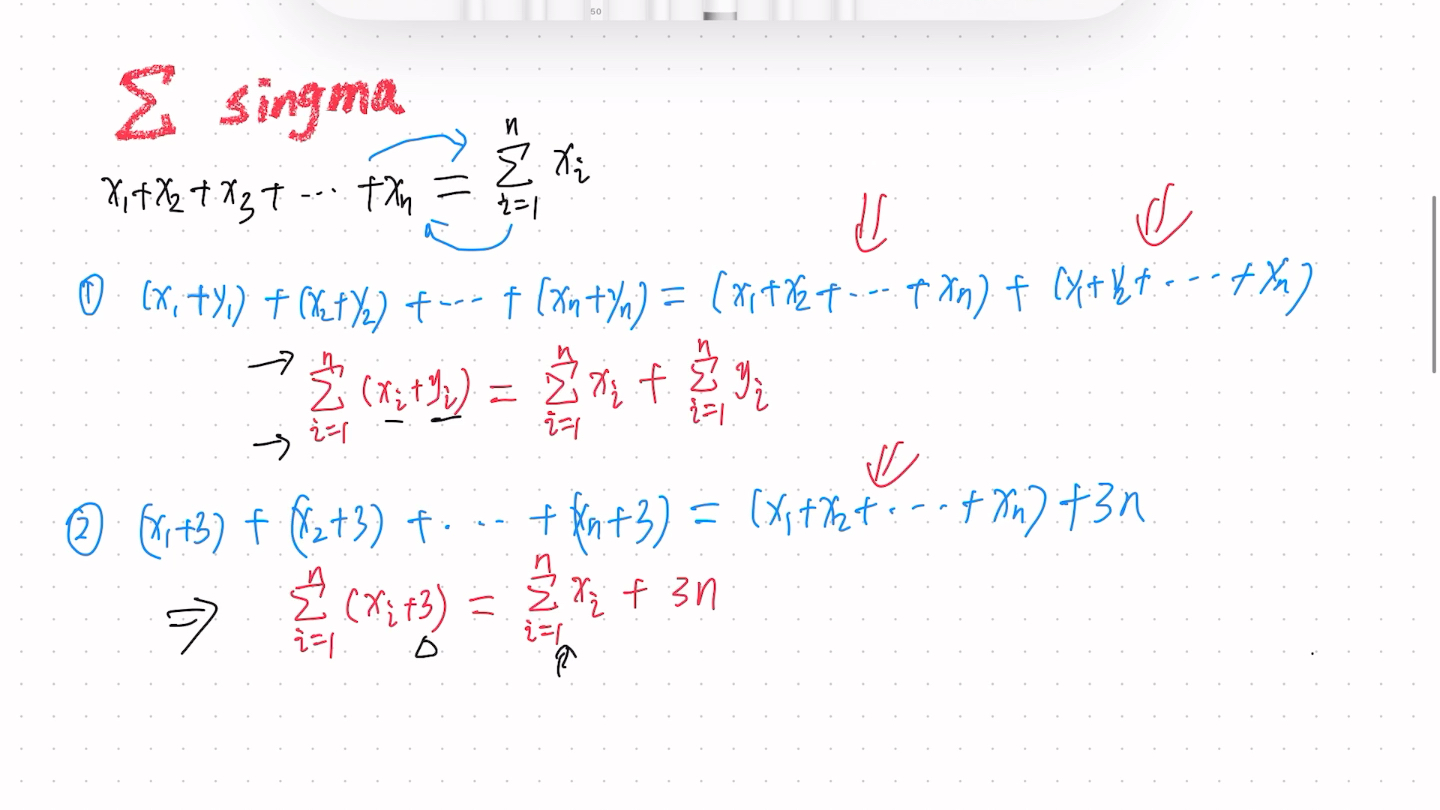 50
Σ singma
x₁+x₂+x₃+ ··· +xₙ = ∑ⁿᵢ₌₁ xᵢ
① (x₁+y₁) + (x₂+y₂) + ··· + (xₙ+yₙ) = (x₁+x₂+ ··· +xₙ) + (y₁+y₂+ ··· +yₙ)
→ ∑ⁿᵢ₌₁ (xᵢ+yᵢ) = ∑ⁿᵢ₌₁ xᵢ + ∑ⁿᵢ₌₁ yᵢ
→
② (x₁+3) + (x₂+3) + ··· + (xₙ+3) = (x₁+x₂+ ··· +xₙ) +3n
⇒ ∑ⁿᵢ₌₁ (xᵢ+3) = ∑ⁿᵢ₌₁ xᵢ + 3n